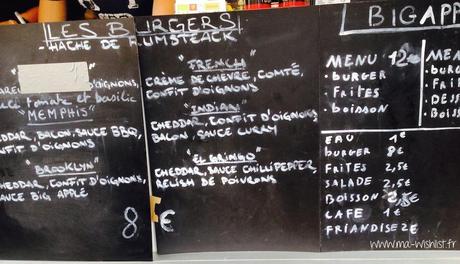 LES BURGERS
- HACHÉ DE RUMSTEACK
D'OIGNONS,
tomate et basilic
"MEMPHIS"
CHEDDAR, BACON, SAUCE BBQ,
CONFIT D'OIGNONS
"BROOKLYN"
CHEDDAR, CONFIT D'OIGNONS,
SAUCE BIG APPLE
8
"FRENCH"
CRÈME DE CHEVRE, COMTÉ,
CONFIT D'OIGNONS
"INDIAN"
CHEDDAR, CONFIT D'OIGNONS
BACON, SAUCE CURRY
"EL GRINGO"
CHEDDAR, SAUCE CHILLI PEPPER,
RELISH DE POIVRONS
€
BIG APP
MENU 12€
. BURGER
. FRITES
. BOISSON
MEN
. BURG
. FRI
. DES
. BOIS
EAU 1€
BURGER 8€
FRITES 2,5€
SALADE 2,5€
BOISSON 2,5€
CAFE 1€
FRIANDISE 2€
www.ma-wishlist.fr